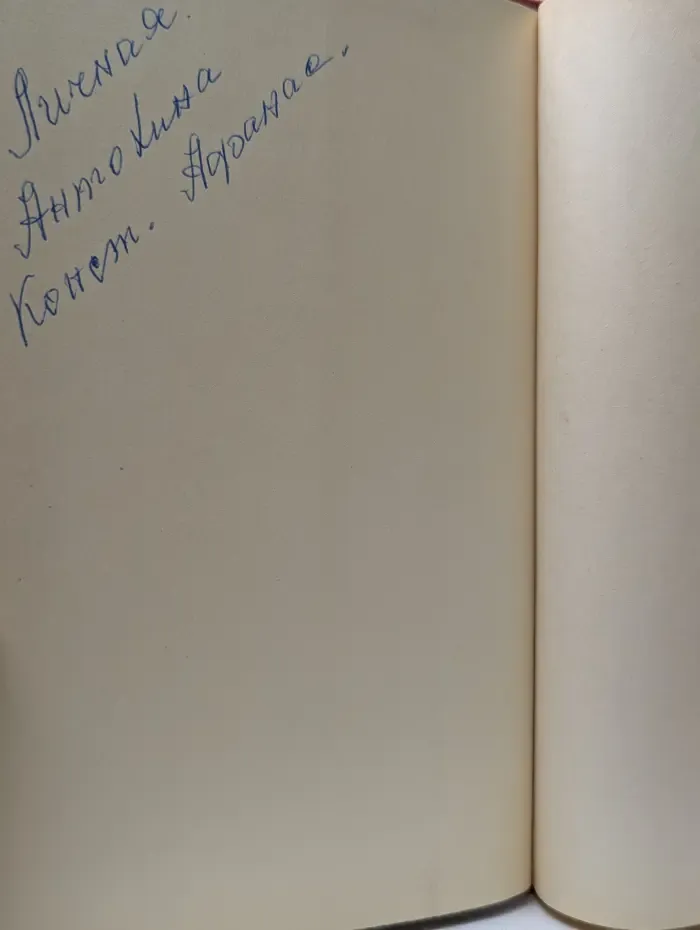 Личная.
Антохина
Конст. Афанас.